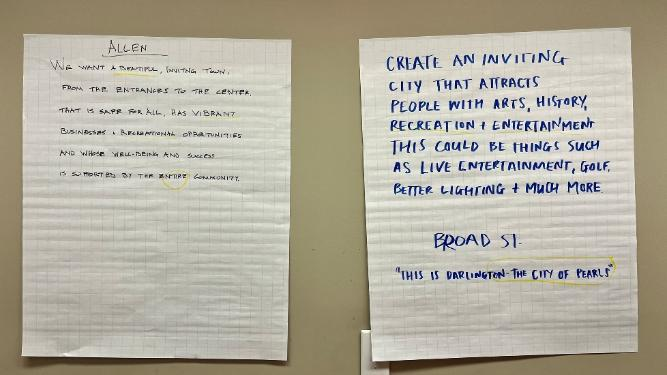 ALLEN
WE WANT A BEAUTIFUL, INVITING TOWN,
FROM THE ENTRANCES TO THE CENTER,
THAT IS SAFE FOR ALL, HAS VIBRANT
BUSINESSES + RECREATIONAL OPPORTUNITIES
AND WHOSE WELL-BEING AND SUCCESS
IS SUPPORTED BY THE ENTIRE COMMUNITY.
CREATE AN INVITING
CITY THAT ATTRACTS
PEOPLE WITH ARTS, HISTORY,
RECREATION + ENTERTAINMENT
THIS COULD BE THINGS SUCH
AS LIVE ENTERTAINMENT, GOLF,
BETTER LIGHTING + MUCH MORE.
BROAD ST.
"THIS IS DARLINGTON-THE CITY OF PEARLS"